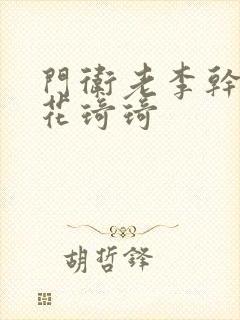 門衛老李幹
花琦琦
胡哲鋒